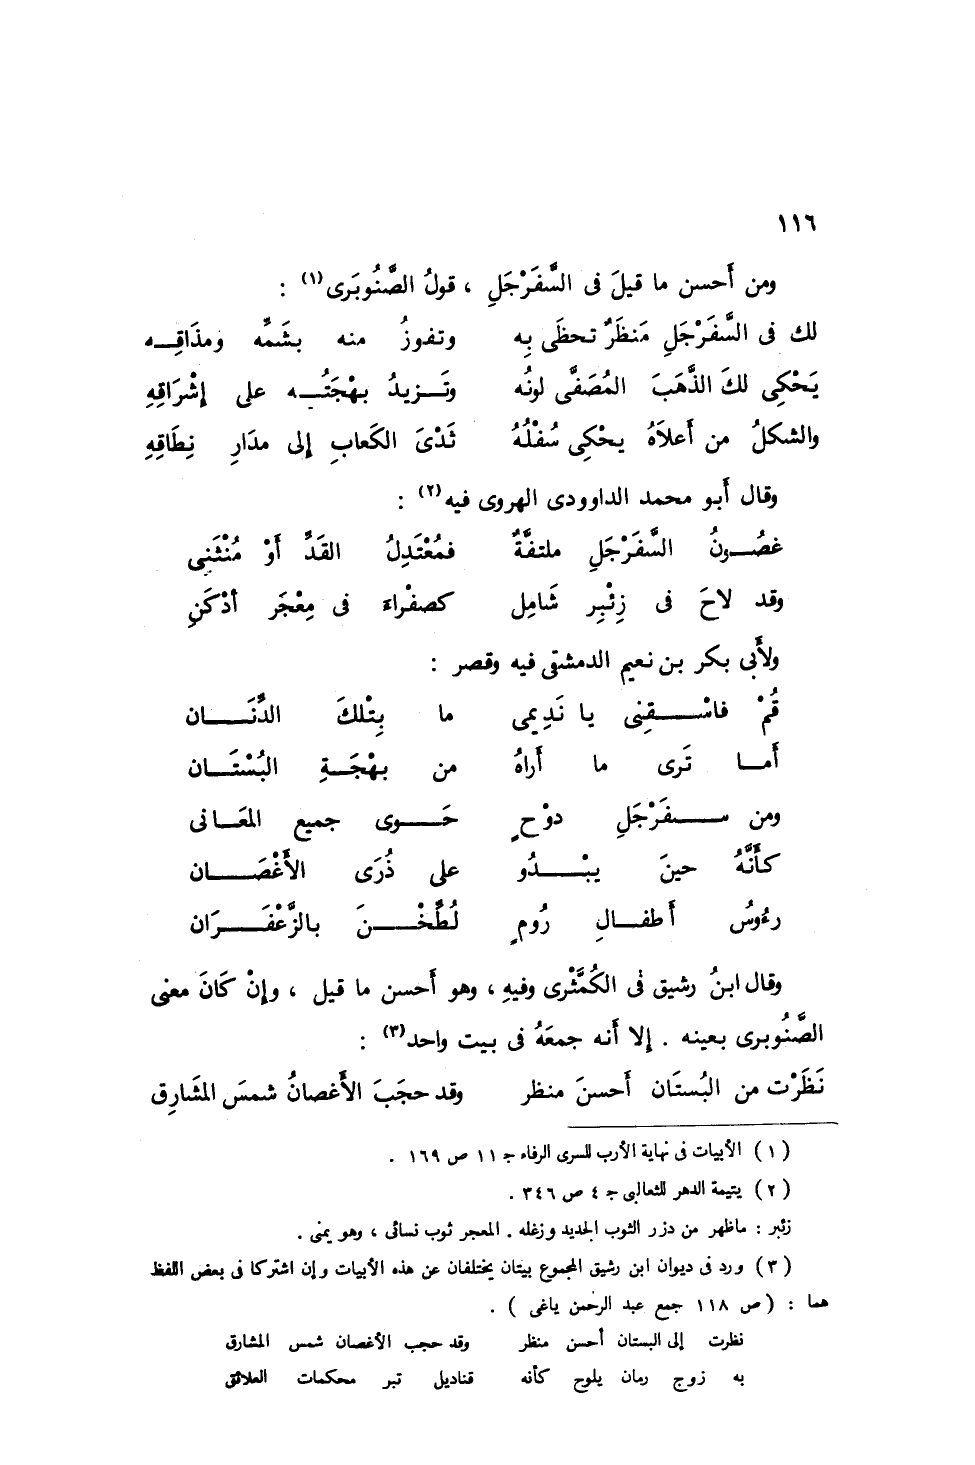 ١١٦
ومن أَحسن ما قيلَ فى السَّفَرْجَلِ ، قولُ الصَّنُوبَرى(١) :
لك فى السَّفَرْجَلِ مَنظَرٌ تحظَى بِه وتفوزُ منه بشَمِّه ومذَاقِـه
يَحْكِى لكَ الذَّهَبَ المُصَفَّى لونُه وتَـزيدُ بهْجَتُـه على إشْرَاقِهِ
والشكلُ من أَعلاَهُ يحْكِى سُفْلُهُ ثَدْىَ الكَعابِ إلى مدَارِ نِطَاقِهِ
وقال أَبو محمد الداوودى الهروى فيه(٢) :
غصُـونُ السَّفَرْجَلِ ملتفَّةٌ فمُعْتَدِلُ القَدِّ أَوْ مُنْثَنِى
وقد لاحَ فى زِئْبِرٍ شَامِل كصفْراءَ فى مِعْجَرٍ أدْكَنِ
ولأَبى بكر بن نعيم الدمشقى فيه وقصر :
قُمْ فاسْـقِنِى يا نَدِيمِى ما بِتْلكَ الدِّنَـان
أَمـا تَرى ما أَراهُ من بهْجَـةِ البُسْتَـان
ومن سـفَرْجَلِ دوْحٍ حَـوى جميع المعَـانى
كأَنَّهُ حينَ يبْـدُو على ذُرَى الأَغْصَـان
رءُوسُ أَطفـالِ رُومٍ لُطِّخْـنَ بالزَّعْفَـرَان
وقال ابنُ رشيق فى الكُمَّثْرى وفيهِ ، وهو أَحسن ما قيل ، وإنْ كَانَ معنى
الصَّنُوبرى بعينه . إلا أَنه جمعَهُ فى بيت واحد(٣) :
نَظَرْت من البُستَان أَحسنَ منظر وقد حجَبَ الأَغصانُ شمسَ المشَارِق
(١) الأبيات فى نهاية الأرب للسرى الرفاء جـ ١١ ص ١٦٩ .
(٢) يتيمة الدهر للثعالبى جـ ٤ ص ٣٤٦ .
زئبر : ماظهر من درز الثوب الجديد وزغله . المعجر ثوب نسائى ، وهو يمنى .
(٣) ورد فى ديوان ابن رشيق المجموع بيتان يختلفان عن هذه الأبيات وإن اشتركا فى بعض اللفظ
هما : (ص ١١٨ جمع عبد الرحمن ياغى ) .
نظرت إلى البستان أحسن منظر وقد حجب الأغصان شمس المشارق
به زوج رمان يلوح كأنه قناديل تبر محكمات العلائق